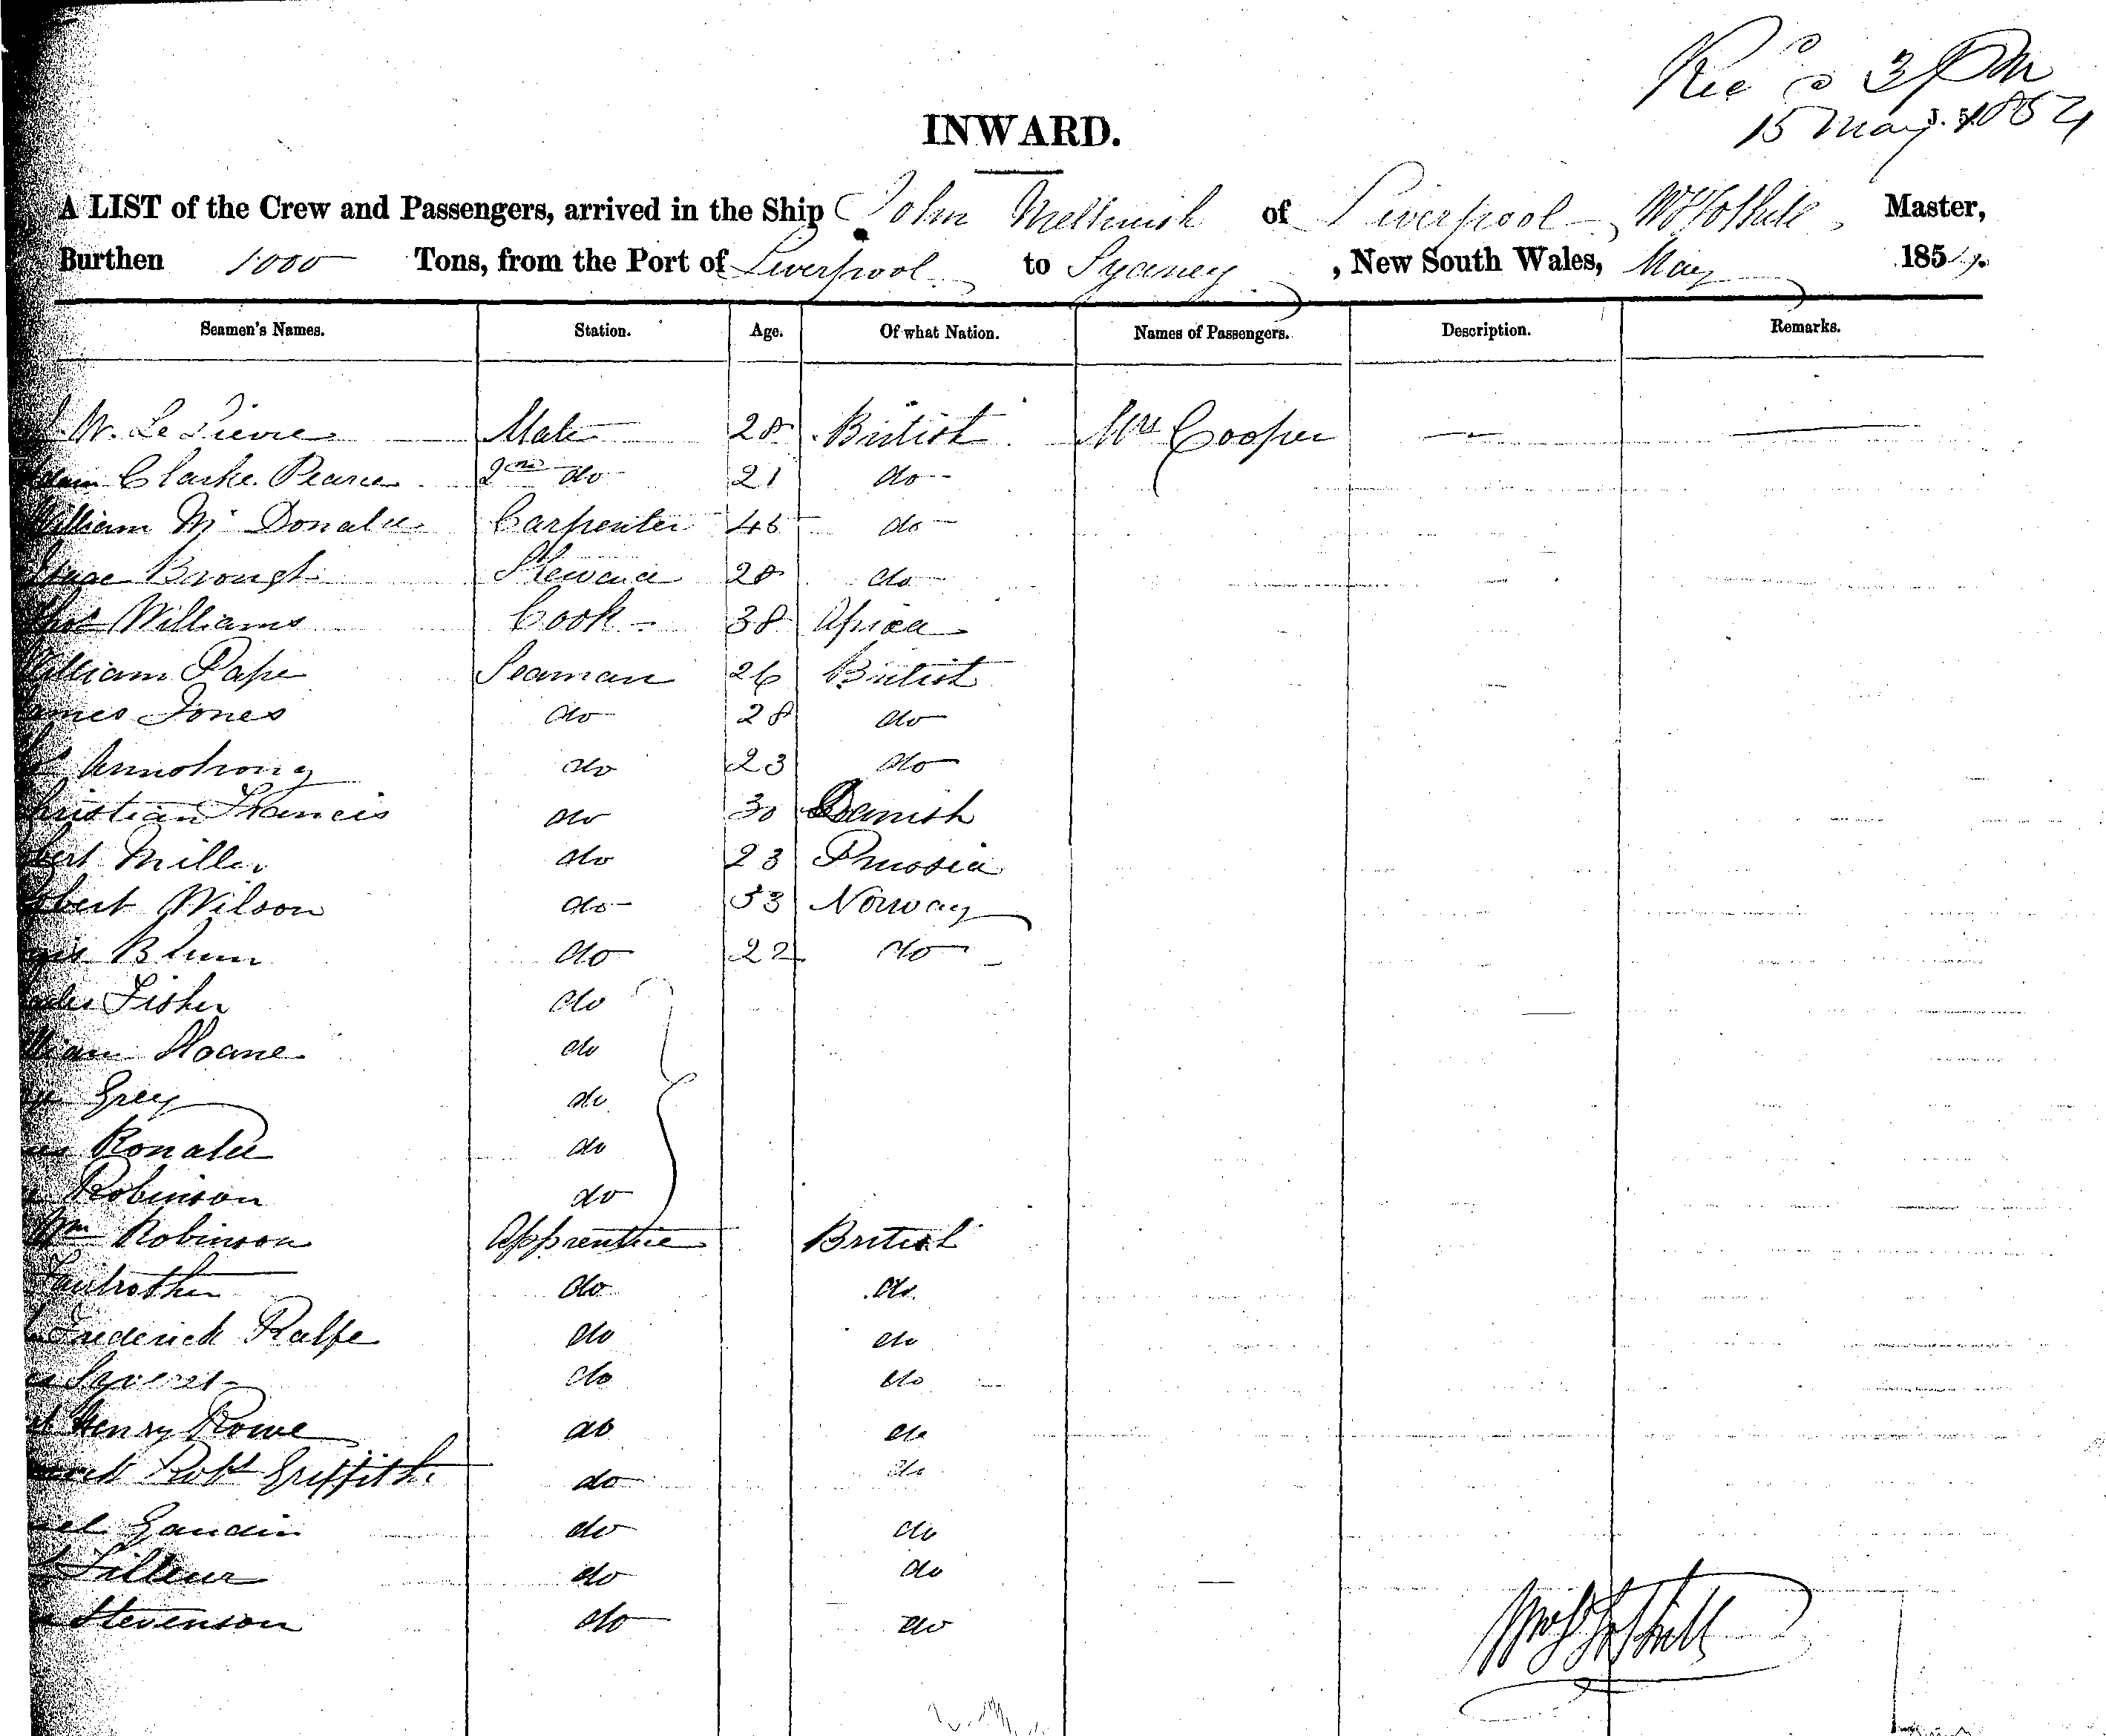 Rec'd 3 PM
15 May 1854
INWARD.
A LIST of the Crew and Passengers, arrived in the Ship John Mellinish of Liverpool Master,
Burthen 1000 Tons, from the Port of Liverpool to Sydney, New South Wales, May 1854.
Seamen's Names. Station. Age. Of what Nation. Names of Passengers. Description. Remarks.
W. Le Lievre Mate 28 British Mrs Cooper
Clarke Pearce 2nd do 21 do
William Mc Donald Carpenter 46 do
Brough Steward 28 do
Williams Cook 38 Africa
William Pape Seaman 26 British
James Jones do 28 do
Armstrong do 23 do
Christian Francis do 30 Danish
Miller do 23 Prussia
Robert Wilson do 53 Norway
Blum do 22 do
Fisher do
Sloane do
Grey do
Ronald do
Robinson do
Wm Robinson Apprentice British
do do
Frederick Ralfe do do
do do
Henry Rowe do do
Robt Griffith do do
Gaudin do do
Filleur do do
Stevenson do do